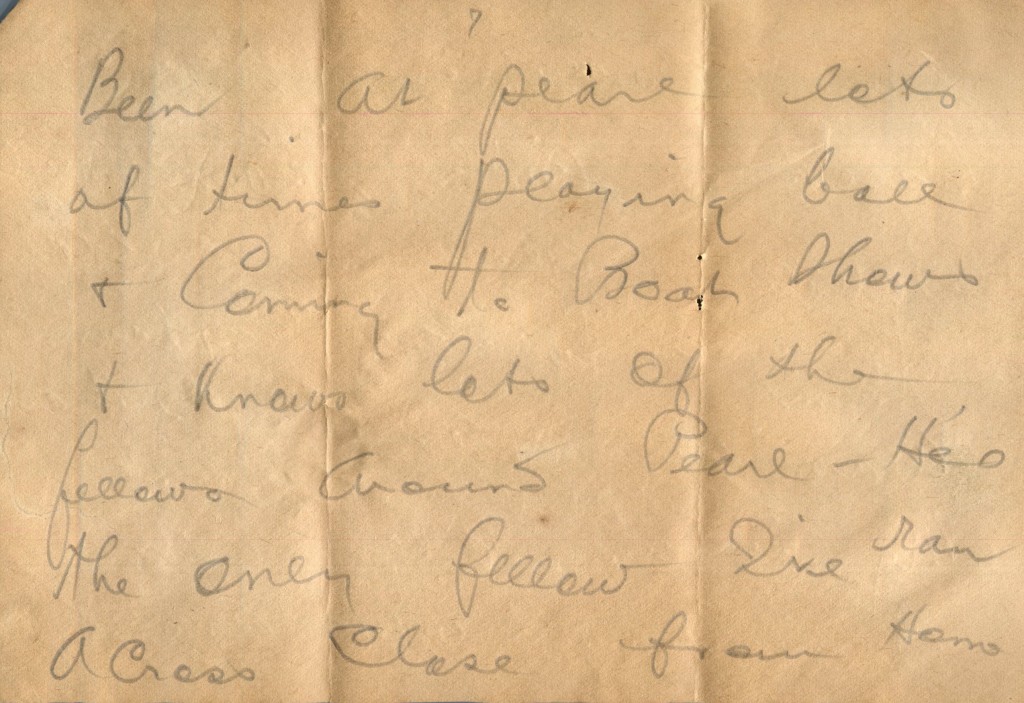 7
Been at pearl lots
of times playing ball
+ Coming to Boat Shows
+ Knows lots of the
fellows around Pearl - He's
the only fellow I've ran
across Close from Home